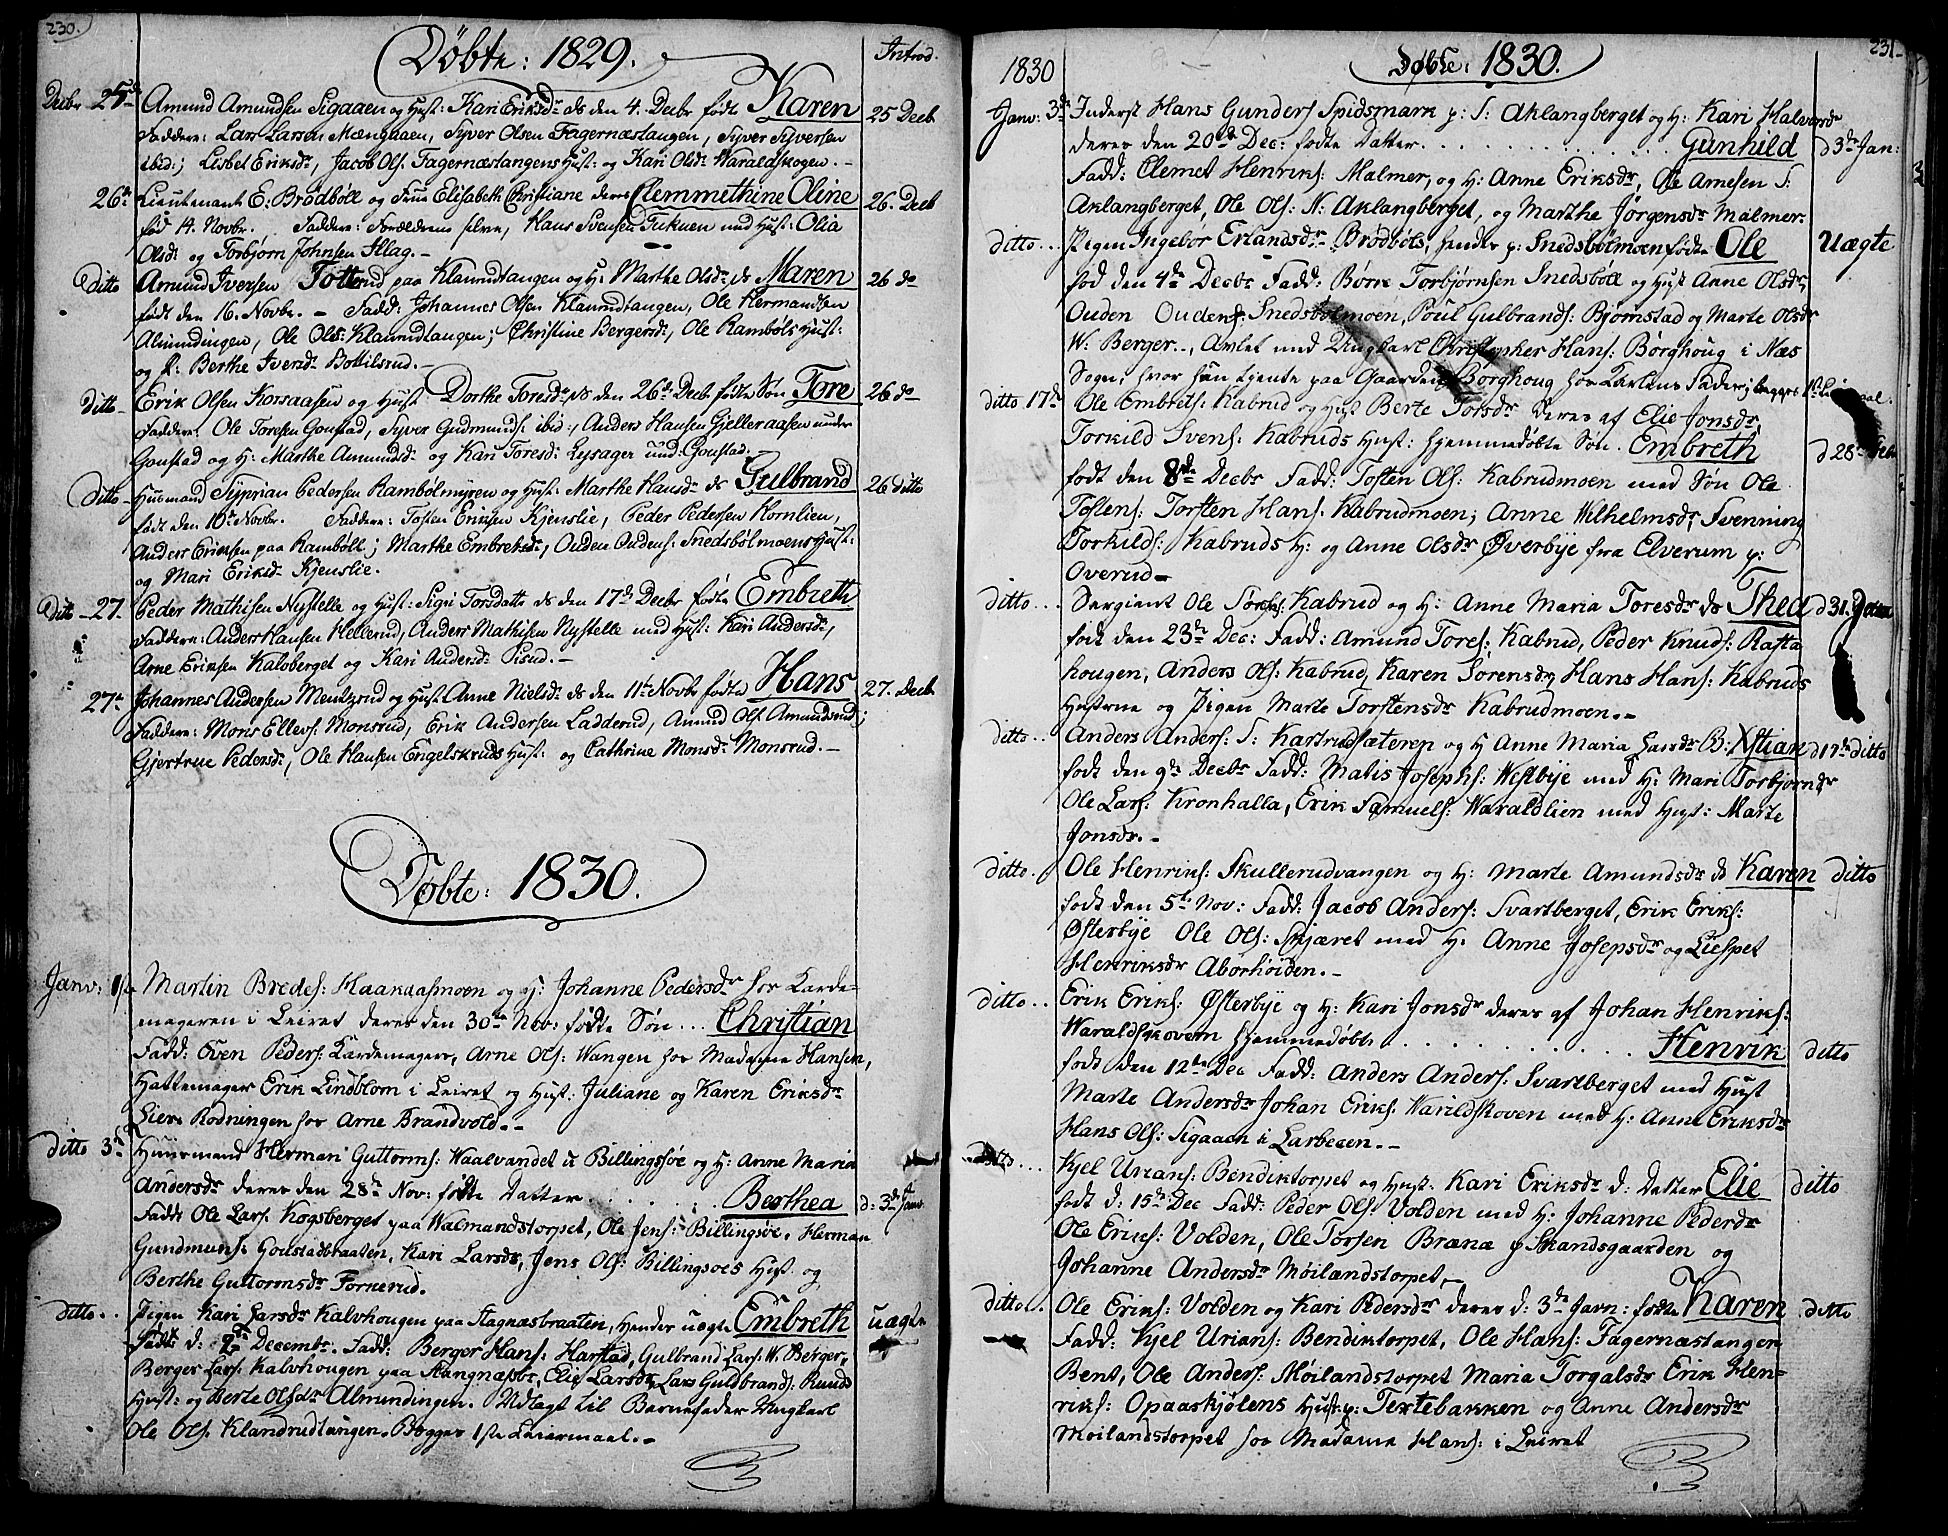 230.
Döbte: 1829.
Introd.
Decbr 25de Amund Amundsen Sigaaen og Hust: Kari Eriksdr ds den 4. Decbr födte Karen 25 Decb
Faddere: Lars Larsen Mængaaen, Syver Olsen Fagernæstangen, Syver Syversen
ibid:; Lisbet Eriksdr, Jacob Ols: Fagernæstangens Hust: og Kari Olsdr Waraldskogen. –
26de Lieutenant E: Brödböll og Frue Elisabeth Christiane deres Clemmethine Oline 26. Decb
föd 14. Novbr. Faddere: Forældrene selve, Hans Svensen Tuknen med Hust: Olia
Olsdr og Torbjörn Johnsen Illag. –
Ditto Amund Iversen Totterud paa Klanrudtangen og H: Marthe Olsdr ds Maren 26 do
födt den 16. Novbr. – Fadd: Johannes Olsen Klanrudtangen, Ole Hermandsen
Almindingen, Ole Ols: Klanrudtangen; Christine Bergersdr, Ole Rambóls Hust:
og P: Berthe Iversdr Bottilsrud. –
Ditto – Erik Olsen Korsaasen og Hust Dorthe Toresdr ds den 26de Decb födte Sön Tore 26 do
Faddere: Ole Toresen Goustad, Syver Gudmunds: ibid:, Anders Hansen Gjelleraasen under
Goustad og H: Marthe Amundsdr og Kari Toresdr Lysager und: Goustad.
Ditto – Huusmand Syprian Pedersen Rambólmyren og Hust: Marthe Hansdr ds Gulbrand 26 ditto
födt den 10de Novbr. Faddere: Tosten Eriksen Kjenslie, Peder Pedersen Hornlien,
Anders Eriksen paa Ramböll; Marthe Embretsdr, Ouden Oudens: Snedsbölmoens Hust:
og Mari Eriksdr Kjenslie.
Ditto – 27. Peder Mathisen Nystelle og Hust: Sigri Torsdatter ds den 17de Decbr födte Embreth
Faddere: Anders Hansen Hellerud, Anders Mathisen Nystelle med Hust: Kari Andersdr,
Arne Eriksen Kalsberget og Kari Andersdr Sisud. –
27de Johannes Andersen Mentzrud og Hust Anne Nielsdr ds den 11te Novbr födte Hans 27. Decb
Faddere: Mons Ellevs: Monsrud, Erik Andersen Ladderud, Amund Ols: Amundsrud;
Gjertrue Pedersdr, Ole Hansen Engelskruds Hust: og Cathrine Monsdr Monsrud. –
Döbte: 1830.
Janv: 1ste Martin Bredes: Haakaasmoen og H: Johanne Pedersdr hos Karde-
mageren i Leiret deres den 30te Nov: födte Sön ... Christian
Fadd: Even Peders: Kardemager, Arne Ols: Wangen hos Madame Hansen,
Hattemager Erik Lindblom i Leiret og Hust: Juliane og Karen Eriksdr
Lier Rodningen hos Arne Brandvold. –
ditto 3de Huusmand Herman Guttorms: Waalvandet u Billingsöe og H: Anne Maria
Andersdr deres den 28de Nov: födte Datter ...... Berthea d: 3de Janv.
Fadd: Ole Lars: Kogsberget paa Walmandstorpet, Ole Jens: Billingsöe, Herman
Gundmuns: Goustadbraaten, Kari Larsdr, Jens Ols: Billingsoes Hust og
Berthe Guttormsdr Fornerud.
ditto.. Pigen Kari Larsdr Kalvhougen paa Stagnæsbraaten, Hendes uægte Embreth uægte
Födt d: 2de Decembr. Fadd: Berger Hans: Harstad, Gulbrand Lars: W: Berger,
Berger Lars: Kalvhougen paa Stangnæsbr, Elie Larsdr, Lars Guldbrands: Ruuds
Hust: og Berte Olsdr Almindingen. Udlagt til Barnefader Ungkarl
Ole Ols: Klandrudtangen. Begges 1ste Leiermaal. –
231.
1830
Döbte: 1830.
Janv: 3de Inderst Hans Gunders: Spidsmark p: S: Aklangberget og H: Kari Halvorsdr
deres den 20de Dec: födte Datter ............ Gunhild d 3de Jan:
Fadd: Clemet Henriks: Malmer, og H: Anne Eriksdr, Ole Arnesen S:
Aklangberget, Ole Ols: N: Aklangberget, og Marthe Jörgensdr Malmer.
ditto... Pigen Ingebor Erlandsdr Brödböls, hendes p: Snedsbölmoen födte Ole Uægte
föd den 4de Decbr Fadd: Börre Torbjörnsen Snedsböll og Hust Anne Olsdr,
Ouden Oudens: Snedsbölmoen, Poul Gulbrands: Bjömstad og Marte Olsdr
W: Berger.., Avlet med Ungkarl Christopher Hans: Börghoug i Næs
Sogn; hvor hun tjente paa Gaarden Borghoug hos Karlens Fader; begges 1ste
ditto 17de Ole Embrets: Kabrud og Hust Berte Torsdr deres af Elie Jonsdr,
Torkild Svens: Kabruds Hust: hjemmedöbte Sön. Embreth d 28de Feb
födt den 8de Decbr Fadd: Tosten Ols: Kabrudmoen med Sön Ole
Tostens: Torsten Hans: Kabrudmoen; Anne Wilhelmsdr, Svenning
Torkilds: Kabruds H: og Anne Olsdr Överbye fra Elverum p:
Overud –
ditto... Sergiant Ole Sörens: Kabrud og H: Anne Maria Toresdr ds Thea d 31. Janv
födt den 23de Dec: Fadd: Amund Tores: Kabrud, Peder Knuds: Rasta
hougen, Anders Ols: Kabrud, Karen Sörensdr, Hans Hans: Kabruds
Hustrue og Pigen Marte Torstensdr Kabrudmoen. –
ditto.. Anders Anders: S: Kastrudsæteren og H Anne Maria Larsdr B: Xstian d 17de ditto
födt den 9de Decbr Fadd: Matis Josephs: Westbye med H: Mari Torbjörnsdr
Ole Lars: Kronhalla, Erik Samuels: Waraldlien med Hust: Marte
Jonsdr. –
ditto. Ole Henriks: Skullerudvangen og H: Marte Amundsdr ds Karen ditto
födt den 5te Nov: Fadd: Jacob Anders: Svartberget, Erik Eriks:
Österbye Ole Ols: Skjæret med H: Anne Josepsdr og Liespet
Henriksdr Aborhöiden. –
ditto.. Erik Eriks: Österbye og H: Kari Jonsdr deres af Johan Henriks:
Waraldskovem hjemmedöbte ............ Henrik ditto
födt den 12te Dec Fadd: Anders Anders: Svartberget med Hust
Marte Andersdr Johan Eriks: Warildskoven med H: Anne Eriksdr
Hans Ols: Sigaaen i Larbecen. –
ditto... Kjel Urians: Bendiktorpet og Hust. Kari Eriksdr d: Datter Elie ditto
födt d: 15de Dec Fadd: Peder Ols: Volden med H: Johanne Pedersdr
Ole Eriks: Volden, Ole Torsen Brænæ p Skandsgaarden og
Johanne Andersdr Möilandstorpet –
ditto.. Ole Eriks: Volden og Kari Pedersdr deres d: 3de Janv: födte Karen ditto
Fadd: Kjel Urians: Bendiktorpet, Ole Hans: Fagernæstangen
Bent, Ole Anders: Möilandstorpet Maria Torgalsdr Erik Hen-
riks: Opaaskjölens Hust p: Tertebakken og Anne Andersdr
Möilandstorpet hos Madame Hans: i Leiret